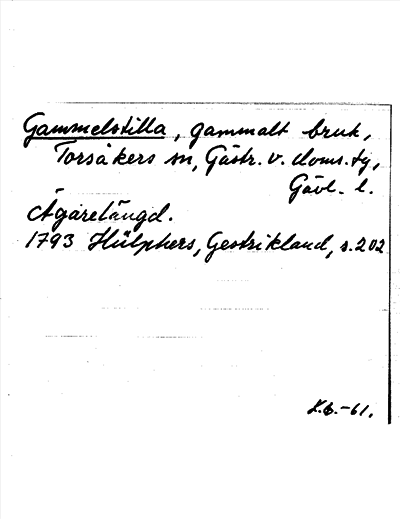 Gammelstilla, gammalt bruk,
Torsåkers sn, Gästr. v. doms. tg,
Gävl. l.
Ägarelängd.
1793 Hülphers, Gestrikland, s. 202
K.G. -61.